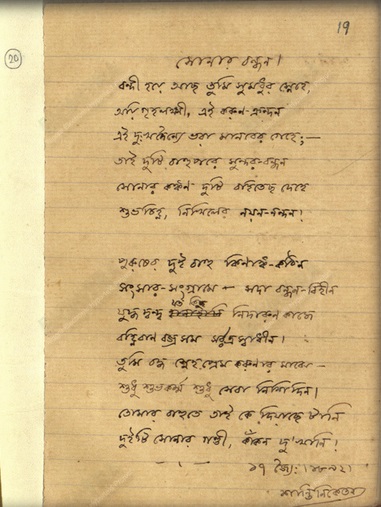 19
20
সোনার বন্ধন।
বন্দী হয়ে আছ তুমি সুমধুর স্নেহে,
অয়ি গৃহলক্ষ্মী, এই করুণ-ক্রন্দন
এই দুঃখদৈন্যে ভরা মানবের গেহে;—
তাই দুটি বাহুপরে সুন্দর-বন্ধন
সোনার কঙ্কণ দুটি বহিতেছ দেহে
শুভচিহ্ন, নিখিলের নয়ন-নন্দন!
পুরুষের দুই বাহু কিণাঙ্ক-কঠিন
সংসার-সংগ্রামে— সদা বন্ধন-বিহীন
যুদ্ধ দ্বন্দ্ব যত কিছু নিদারুণ কাজে
বহ্নিবাণ বজ্র সম সর্ব্বত্র স্বাধীন।
তুমি বদ্ধ স্নেহ প্রেম করুণার মাঝে—
শুধু শুভকর্ম্ম শুধু সেবা নিশিদিন।
তোমার বাহুতে তাই কে দিয়াছে টানি
দুইটি সোনার গণ্ডী, কাঁকন দু'খানি!
১৭ জ্যৈঃ।
শান্তিনিকেতন